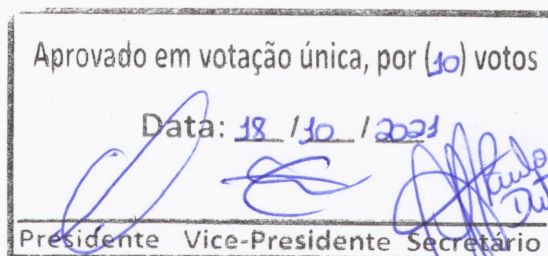 Aprovado em votação única, por (10) votos
Data: 18 / 10 / 2021
Paulo
Presidente Vice-Presidente Secretário